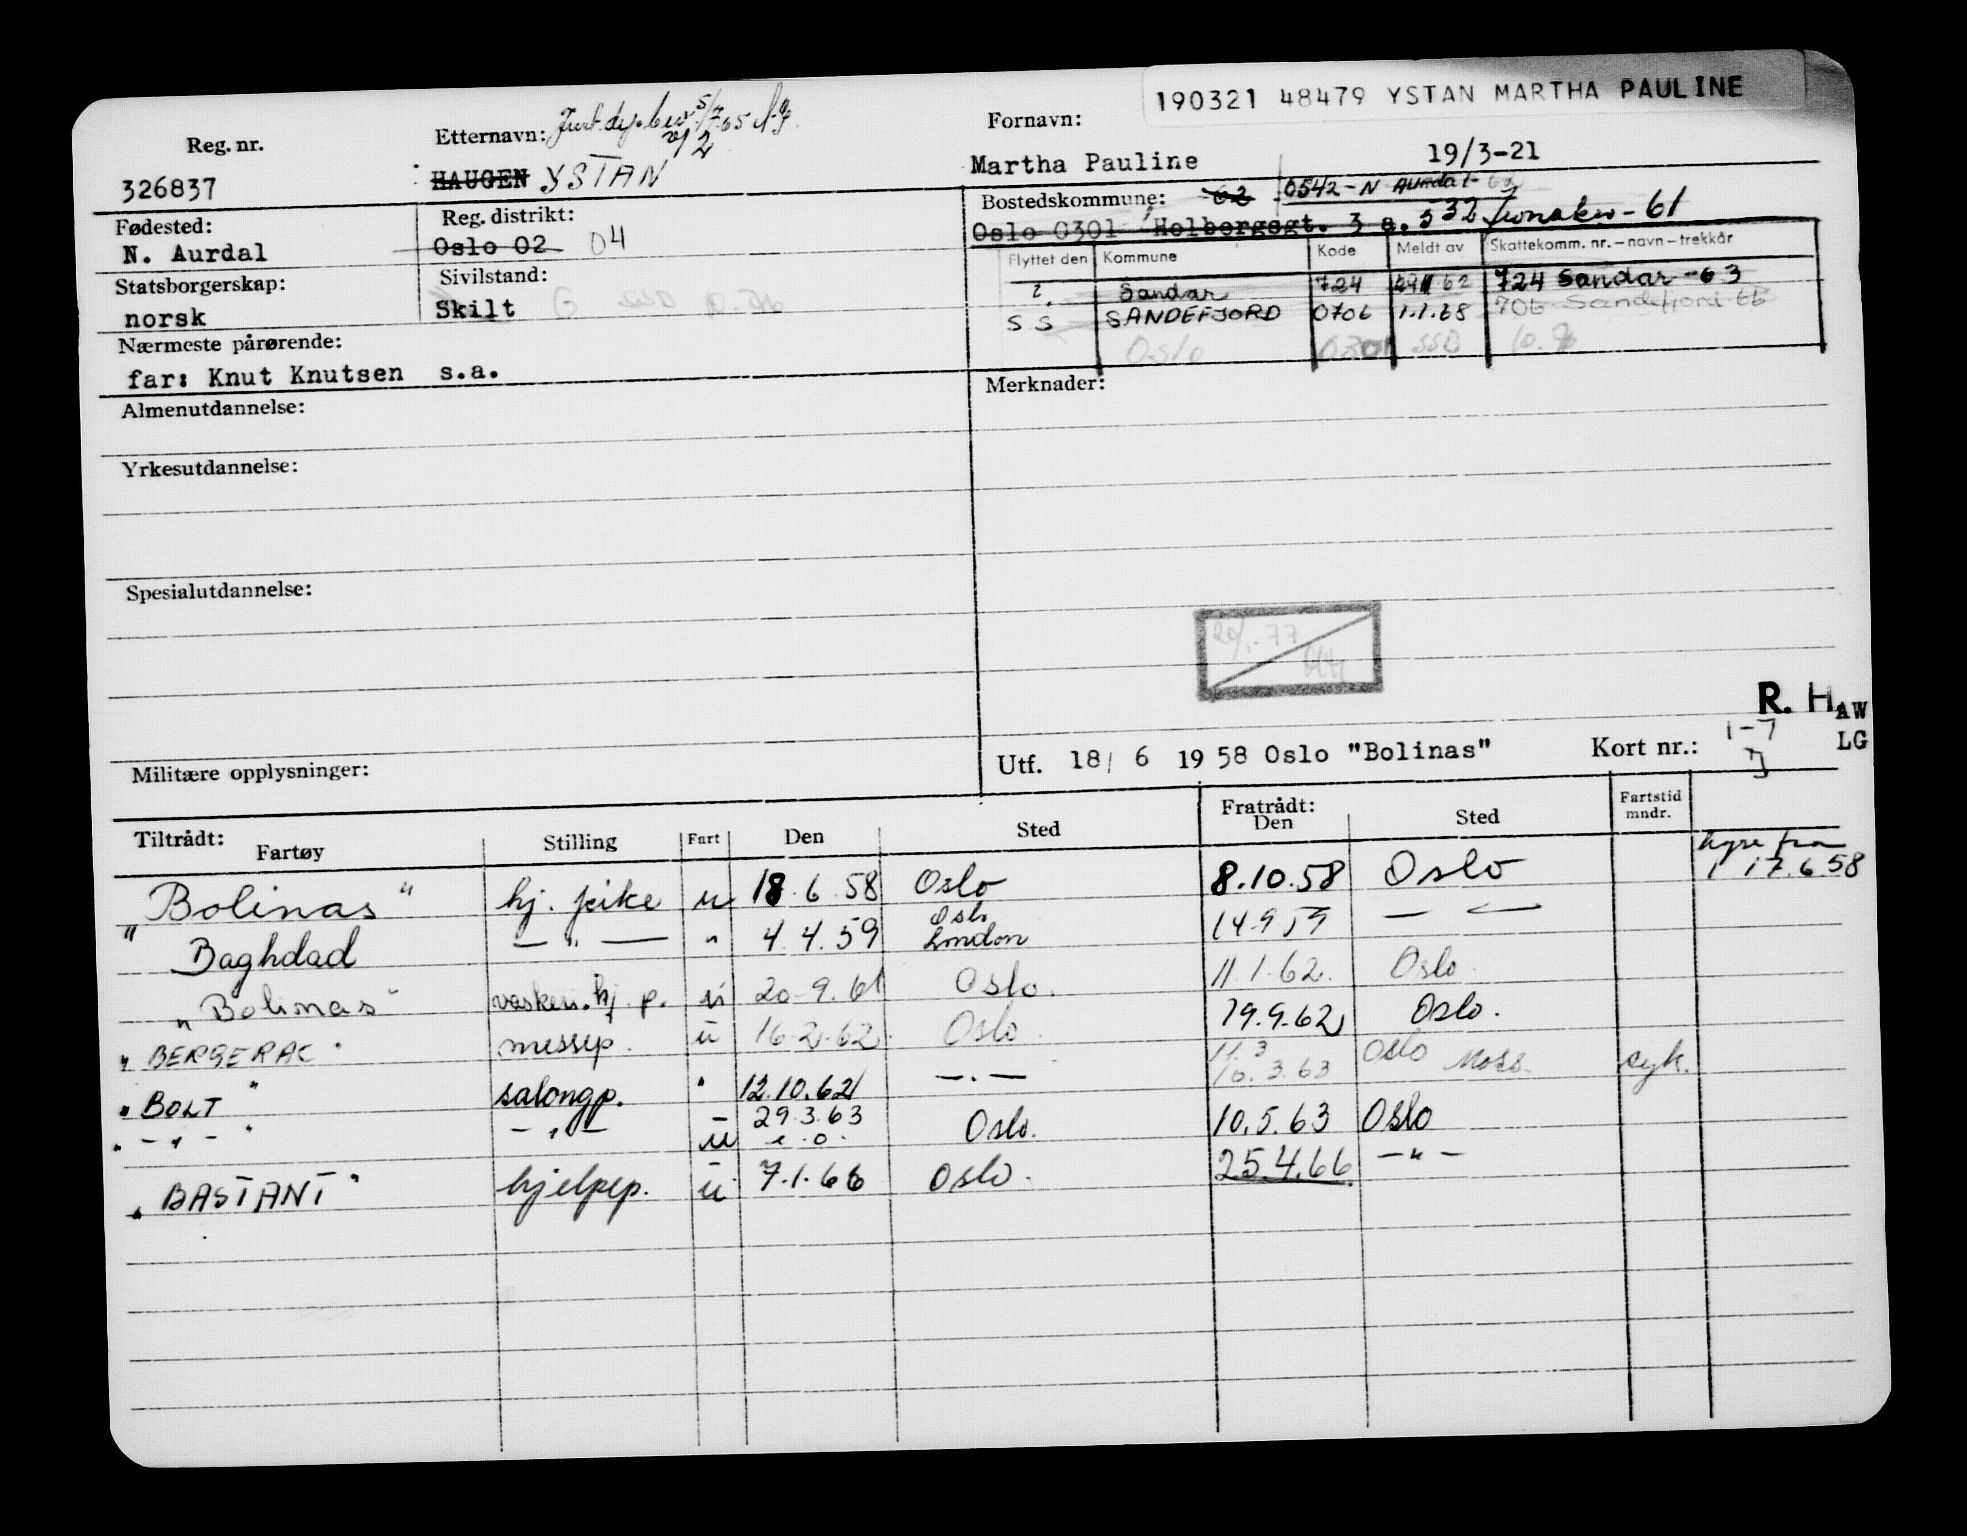 190321 48479 YSTAN MARTHA PAULINE
Reg. nr. Etternavn: Just. dep. bev. 5/7.65 Fornavn:
326837 HAUGEN YSTAN Martha Pauline 19/3-21
Fødested: Reg. distrikt: Bostedskommune: 62 0542-N Aurdal-62
N. Aurdal Oslo 02 04 Oslo 0301 Holbergsgt. 3 a. 532 Jevnaker-61
Statsborgerskap: Sivilstand: Flyttet den Kommune Kode Meldt av Skattekomm. nr.-navn-trekkår
norsk Skilt G ?. Sandar 724 62 724 Sandar-63
SS SANDEFJORD 0706 1.1.68 706 Sandefjord 66
Nærmeste pårørende: Oslo 0301 SSB
far: Knut Knutsen s.a.
Almenutdannelse: Merknader:
Yrkesutdannelse:
Spesialutdannelse:
20/1.77
R. H AW
LG
Militære opplysninger: Utf. 18/ 6 1958 Oslo "Bolinas" Kort nr.: 1-7
Tiltrådt: Fartøy Stilling Fart Den Sted Fratrådt: Den Sted Fartstid mndr.
hyre fra
"Bolinas" hj. pike u 18.6.58 Oslo 8.10.58 Oslo 17.6.58
" Baghdad — " — " 4.4.59 Oslo London 14.9.59 — " —
"Bolinas" vaskeri.hj. p. u 20-9.61 Oslo. 11.1.62. Oslo.
"BERGERAC" messep. u 16.2.62. Oslo. 19.9.62 Oslo.
"BOLT" salongp. " 12.10.62 — . — 11.3 10.3.63 Oslo Moss syk.
" - " - " — " — u 29.3.63 e.o. Oslo. 10.5.63 Oslo
"BASTANT" hjelpep. u 7.1.66 Oslo. 25.4.66. — " —